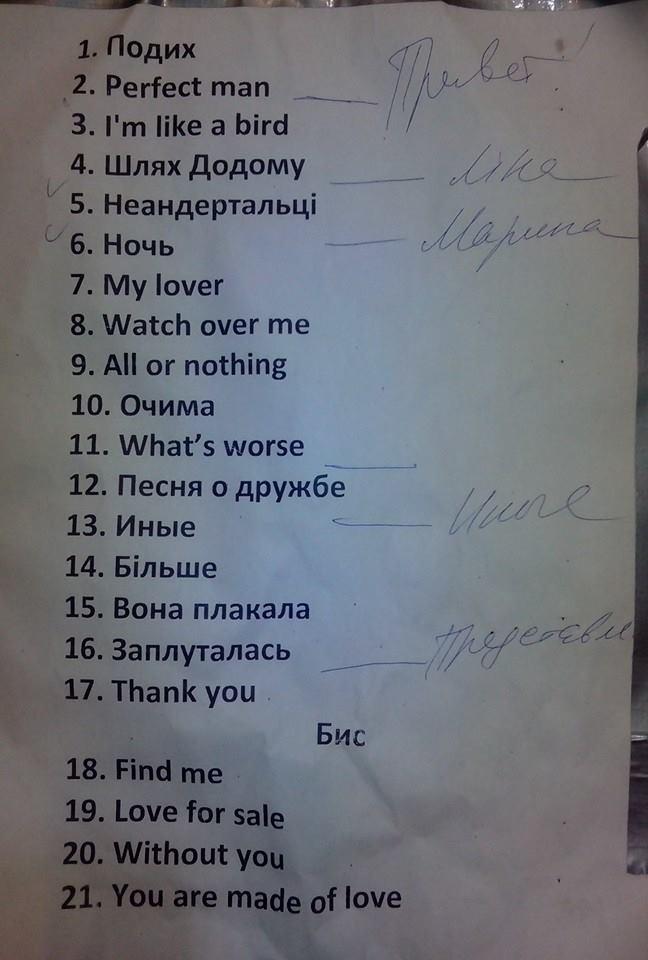 1. Подих
2. Perfect man — Привет!
3. I'm like a bird
4. Шлях Додому — Ліна
5. Неандертальці
6. Ночь — Марина
7. My lover
8. Watch over me
9. All or nothing
10. Очима
11. What's worse
12. Песня о дружбе
13. Иные — Иные
14. Більше
15. Вона плакала
16. Заплуталась — Представл
17. Thank you
Бис
18. Find me
19. Love for sale
20. Without you
21. You are made of love